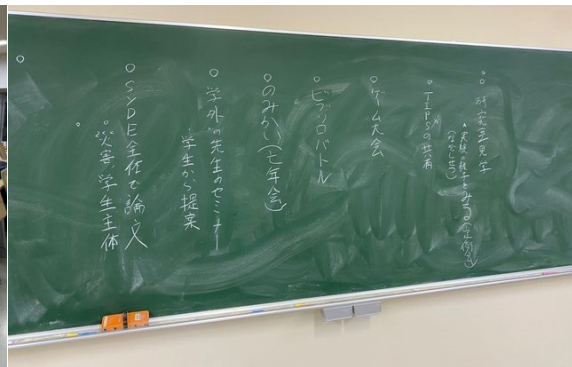 ○ 研究室見学
• 実験の様子をみる(定例会)
○ TIPSの共有
○ ゲーム大会
○ ビブリオバトル
○ のみかい(七年会)
○ 学外の先生のセミナー
学生から提案
○ SYDE全体で論文
○ 災害 学生主体
○